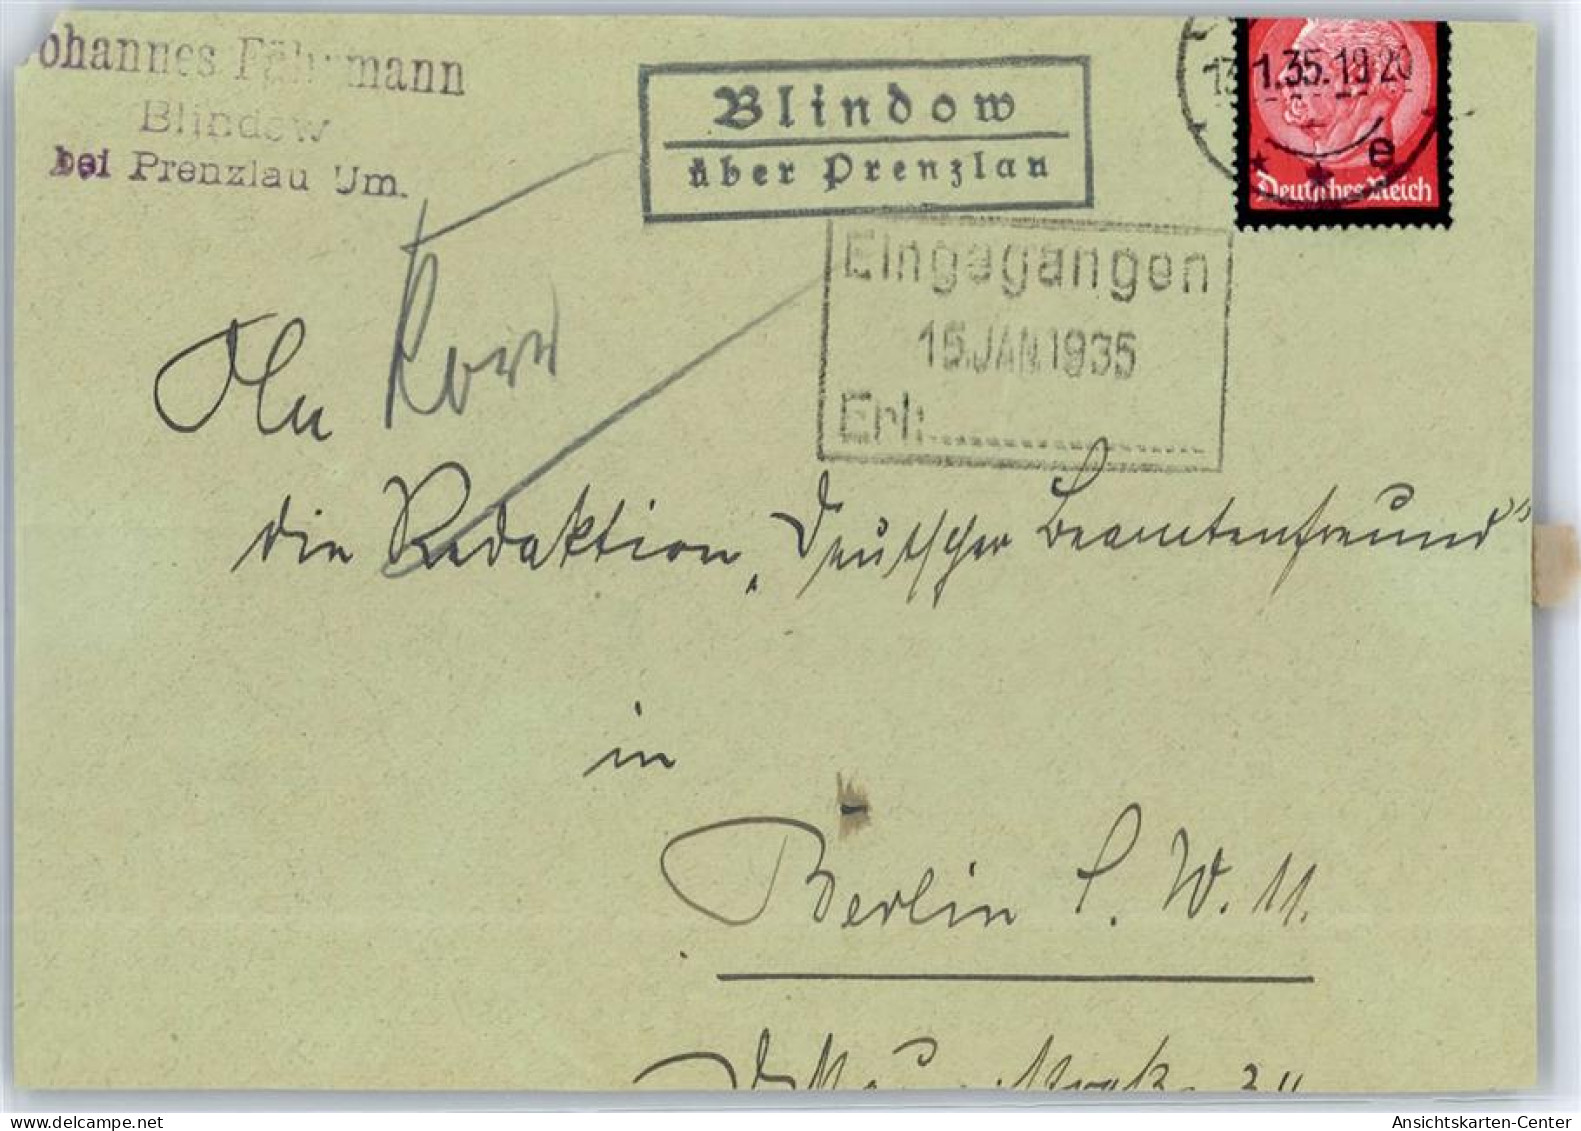 Johannes Fährmann
Blindow
bei Prenzlau Um.
Blindow
über Prenzlau
13.1.35.19-20
e
Deutsches Reich
Eingegangen
15.JAN.1935
Erl:
An
die Redaktion „Deutscher Beamtenfreund"
in
Berlin S. W. 11.
34
Ansichtskarten-Center